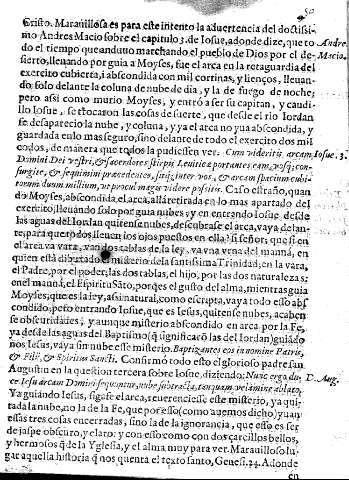 50
Cristo. Marauillosa es para este intento la aduertencia del doctissi-
mo Andres Macio sobre el capitulo 3. de Iosue, adonde dize, que to Andre.
do el tiempo que anduuo marchando el pueblo de Dios por el de- Macio.
sierto, lleuando por guia a Moyses, fue el arca en la retaguardia del
exercito cubierta, i abscondida con mil cortinas, y lienços, lleuan-
do solo delante la coluna de nube de dia, y la de fuego de noche;
pero assi como murio Moyses, y entró a ser su capitan, y caudi-
llo Iosue, se trocaron las cosas de suerte, que desde el rio Iordan
se desaparecio la nube, y coluna, y ya el arca no yua abscondida, y
guardada en lo mas seguro, sino delante de todo el exercito dos mil
codos, de manera que todos la pudiessen ver. Cum videritis arcam Iosue. 3.
Domini Dei vestri, & sacerdotes stirpis Leuiticæ portantes eam, vos quoque con-
surgite, & sequimini præcedentes, sitque inter vos, & arcam spacium cubi-
torum duum millium, vt procul magis videre possitis. Caso estraño, quan
do Moyses, abscondida el arca, allá retirada en lo mas apartado del
exercito, lleuando solo por guia nubes; y en entrando Iosue, desde
las aguas del Iordan quitense nubes, descubrase el arca, vaya delan-
te, para que todos lleuen los ojos puestos en ella? si señor, que si en
el arca va vara, van dos tablas de la ley, va vna vrna del manná, en
quien está dibuxado el misterio de la santissima Trinidad; en la vara,
el Padre, por el poder; las dos tablas, el hijo, por las dos naturalezas;
en el manná, el Espiritu Sãto, porque es el gusto del alma, mientras guia
Moyses, que es la ley, assi natural, como escripta, vaya todo esso abs
condido; pero entrando Iosue, que es Iesus, quitense nubes, acaben
se obscuridades, y aunque misterio abscondido en arca por la Fe,
ya desde las aguas del Baptismo (q̃ significarõ las del Iordan) guiado
nos Iesus, vaya sin nube esse misterio. Baptizantes eos in nomine Patris,
& Filij, & Spiritus Sancti. Confirmó todo esto el glorioso padre san
Augustin en la question tercera sobre Iosue, diziendo; Nunc ergo du- D. Aug.
ce Iesu arcam Domini sequuntur, nube subtracta, tanquam velamine ablato.
Ya guiando Iesus, sigase el arca, reuerenciese este misterio, ya qui-
tada la nube, no la de la Fe, que por esso (como auemos dicho) yuan
essas tres cosas encerradas, sino la de la ignorancia, que esso es ser
de jaspe obscuro, y claro: y con esso como con dos çarcillos bellos,
y hermosos q̃da la Yglesia, y el alma muy para ver. Marauilloso lu-
gar aquella historia q̃ nos quenta el texto santo, Genesi. 24. Adonde
en